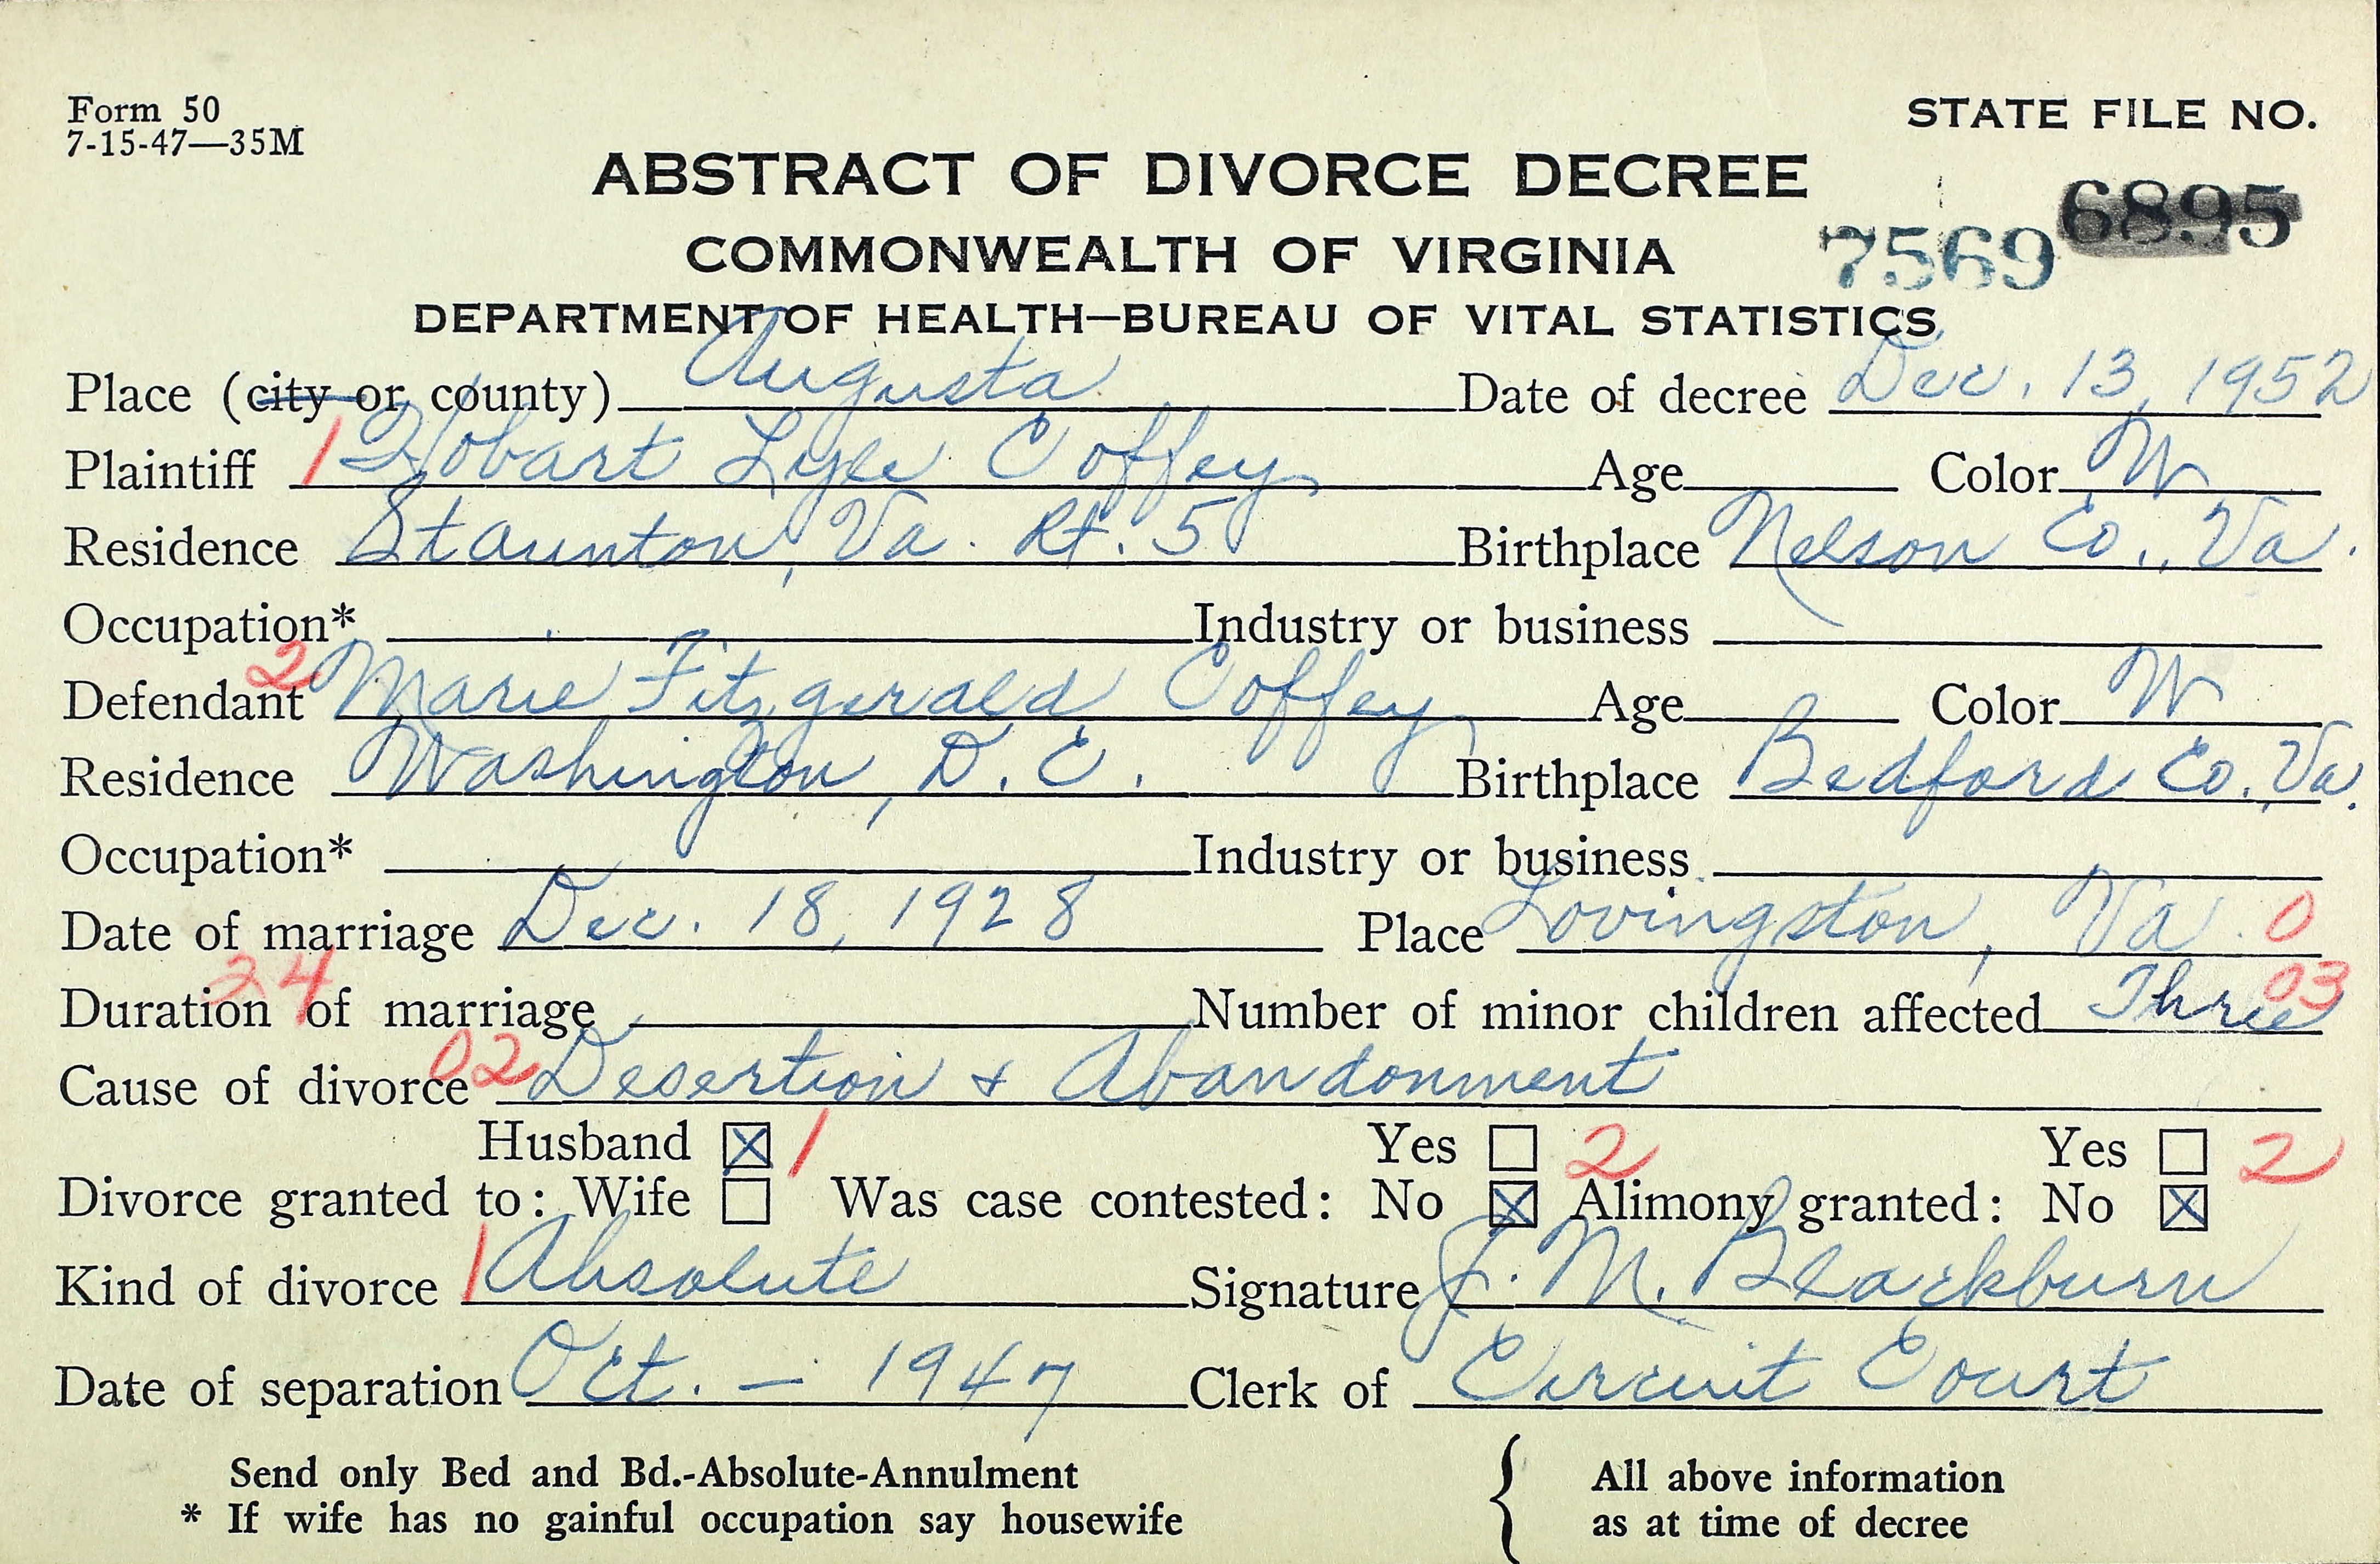 Form 50
7-15-47—35M
STATE FILE NO.
ABSTRACT OF DIVORCE DECREE
6895
COMMONWEALTH OF VIRGINIA
7569
DEPARTMENT OF HEALTH—BUREAU OF VITAL STATISTICS
Place (city or county) Augusta Date of decree Dec. 13, 1952
Plaintiff 1 Hobart Lyle Coffey Age Color W
Residence Staunton, Va. Rt. 5 Birthplace Nelson Co., Va.
Occupation* Industry or business
Defendant 2 Marie Fitzgerald Coffey Age Color W
Residence Washington, D.C. Birthplace Bedford Co. Va.
Occupation* Industry or business
Date of marriage Dec. 18, 1928 Place Lovingston, Va. 0
Duration of marriage 24 Number of minor children affected Three 03
Cause of divorce 02 Desertion & Abandonment
Husband ☒ 1 Yes ☐ 2 Yes ☐ 2
Divorce granted to: Wife ☐ Was case contested: No ☒ Alimony granted: No ☒
Kind of divorce 1 Absolute Signature J. M. Blackburn
Date of separation Oct. — 1947 Clerk of Circuit Court
Send only Bed and Bd.-Absolute-Annulment { All above information
* If wife has no gainful occupation say housewife as at time of decree